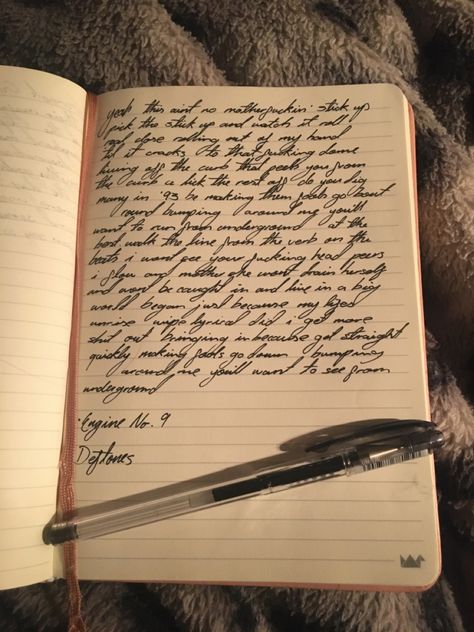 yeah this aint no motherfuckin' stick up
pick the stick up and watch it roll
real close rolling out of my hand
til it cracks to that fucking dome
hung off the curb that peels you from
the curb a lick the rest off do you dig
many in '93 be making them fools go bout
round bumping around me you'll
want to run from underground at the
boot walk the line from the verb on the
beats i wont see your fucking head
i flow and mother she wont drain herself
and wont be caught in and live in a big
world began just because my
lyrical did i get more
shit out bringing in because got straight
quickly making fools go down bumping
around me you'll want to see from
underground
"Engine No. 9
Deftones